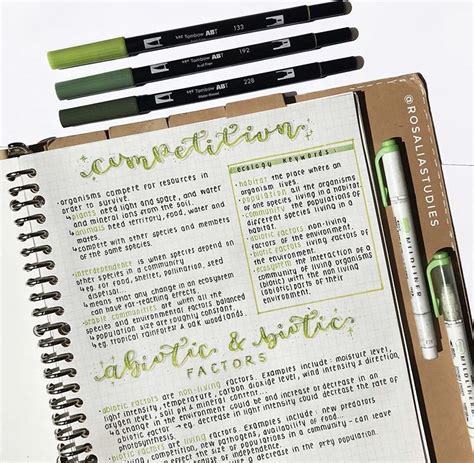 Tombow ABT 133
Tombow ABT 192
Tombow ABT 228
@ROSALIASTUDIES
competition
•organisms compete for resources in
order to survive.
↳plants need light and space, and water
and mineral ions from the soil.
↳animals need territory, food, water and
mates.
↳compete with other species and members
of the same species.
•interdependence is when species depend on
other species in a community
↳e.g. for food, shelter, pollination, seed
dispersal...
↳means that any change in an ecosystem
can have far-teaching effects.
•stable communities are when all the
species and environmental factors balanced
↳population size are roughly constant.
↳e.g. tropical rainforest & oak woodlands.
ecology keywords...
•habitat the place where an
organism lives.
•population all the organisms
of a species living in a habitat.
•community the populations of
different species living in a
habitat.
•abiotic factors non-living
factors of the environment.
•biotic factors living factors of
the environment.
•ecosystem the interaction of a
community of living organisms
(biotic) with the non living
(abiotic) parts of their
environment.
abiotic & biotic
FACTORS
•abiotic factors are non-living factors. Examples include: moisture level,
light intensity, temperature, carbon dioxide level, wind intensity & direction,
oxygen level, soil pH & mineral content...
↳a change in the environment could be and increase or decrease in an
abiotic factor → e.g. decrease in light intensity could decrease the rate of
photosynthesis.
•biotic factors are living factors. Examples include: new predators
competition, new pathogens, availability of food...
effect the size of populations in a community - can leave
decrease in the prey population.